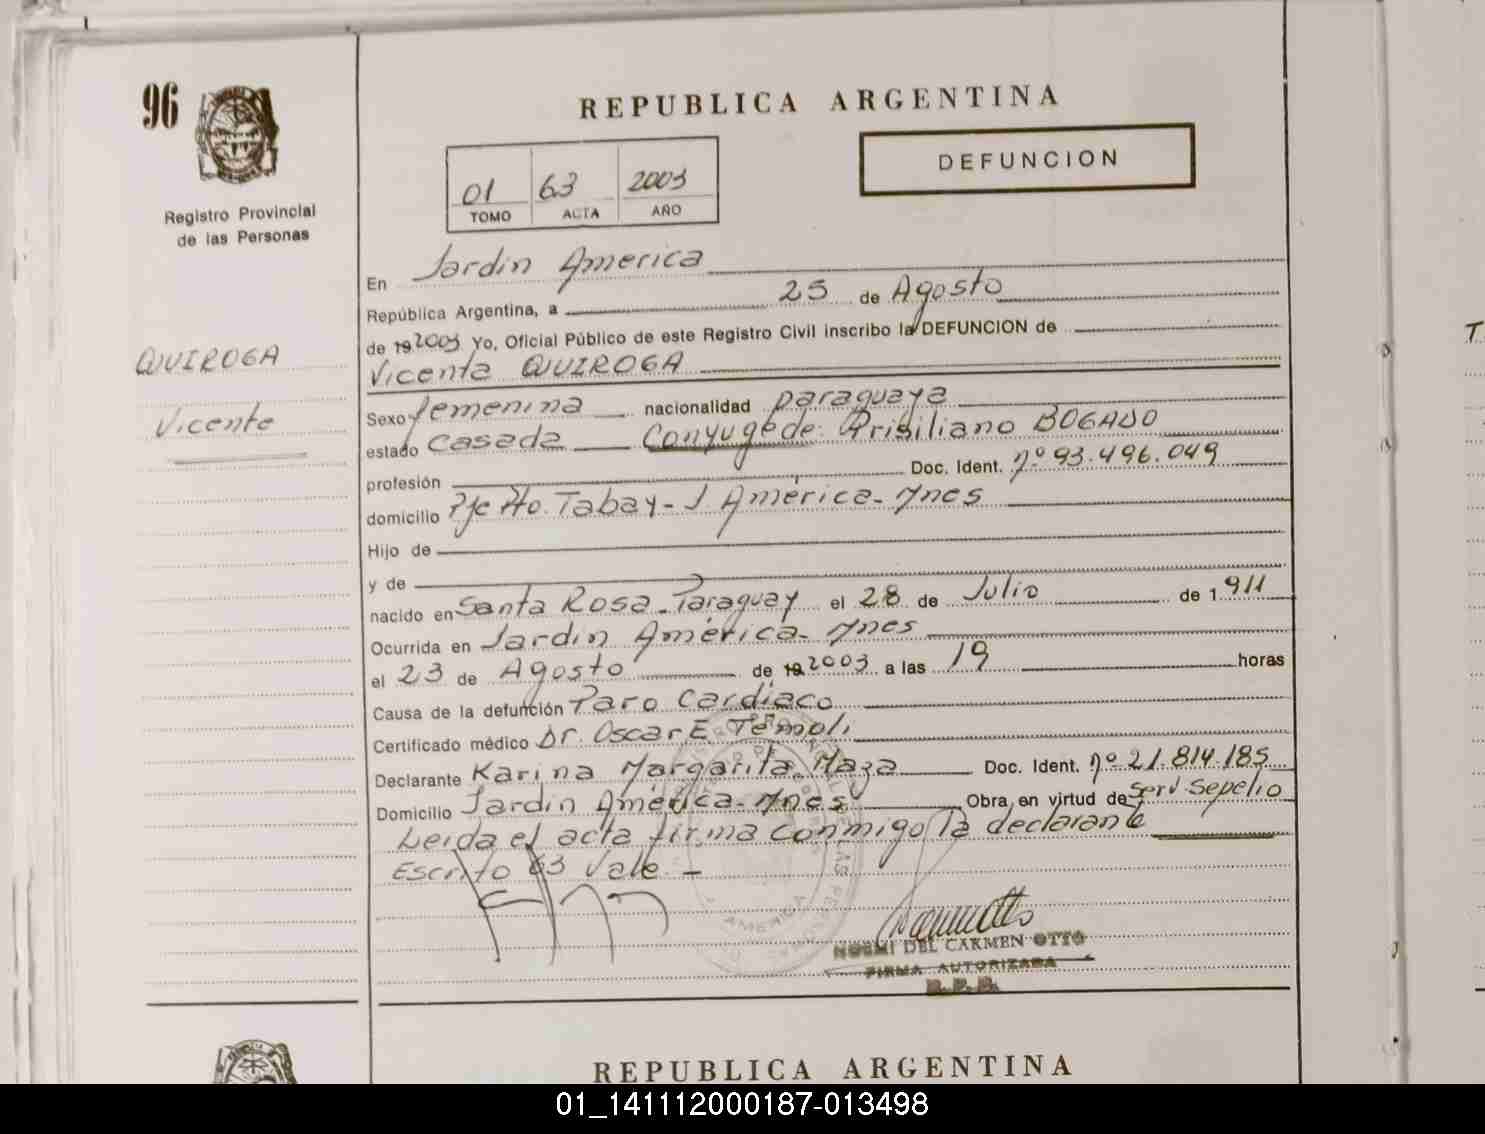 96
REPUBLICA ARGENTINA
DEFUNCION
01 63 2003
TOMO ACTA AÑO
Registro Provincial
de las Personas
QUIROGA
Vicenta
En Jardin America
República Argentina, a 25 de Agosto
de 19 2003 Yo, Oficial Público de este Registro Civil inscribo la DEFUNCION de
Vicenta QUIROGA
Sexo femenina nacionalidad paraguaya
estado Casada Conyuge de: Prisiliano BOGADO
profesión Doc. Ident. nº 93.496.049
domicilio Pje Pto. Tabay - J. América - Mnes
Hijo de
y de
nacido en Santa Rosa - Paraguay el 28 de Julio de 1 911
Ocurrida en Jardin América - Mnes
el 23 de Agosto de 19 2003 a las 19 horas
Causa de la defunción Paro Cardiaco
Certificado médico Dr. Oscar E. Tempoli
Declarante Karina Margarita Maza Doc. Ident. nº 21.814.185
Domicilio Jardin América - Mnes Obra en virtud de Serv Sepelio
Leida el acta firma conmigo la declarante
Escrito 63 Vale -
AMERICA
NOEMI DEL CARMEN OTTO
FIRMA AUTORIZADA
R. P. P.
REPUBLICA ARGENTINA
01_141112000187-013498